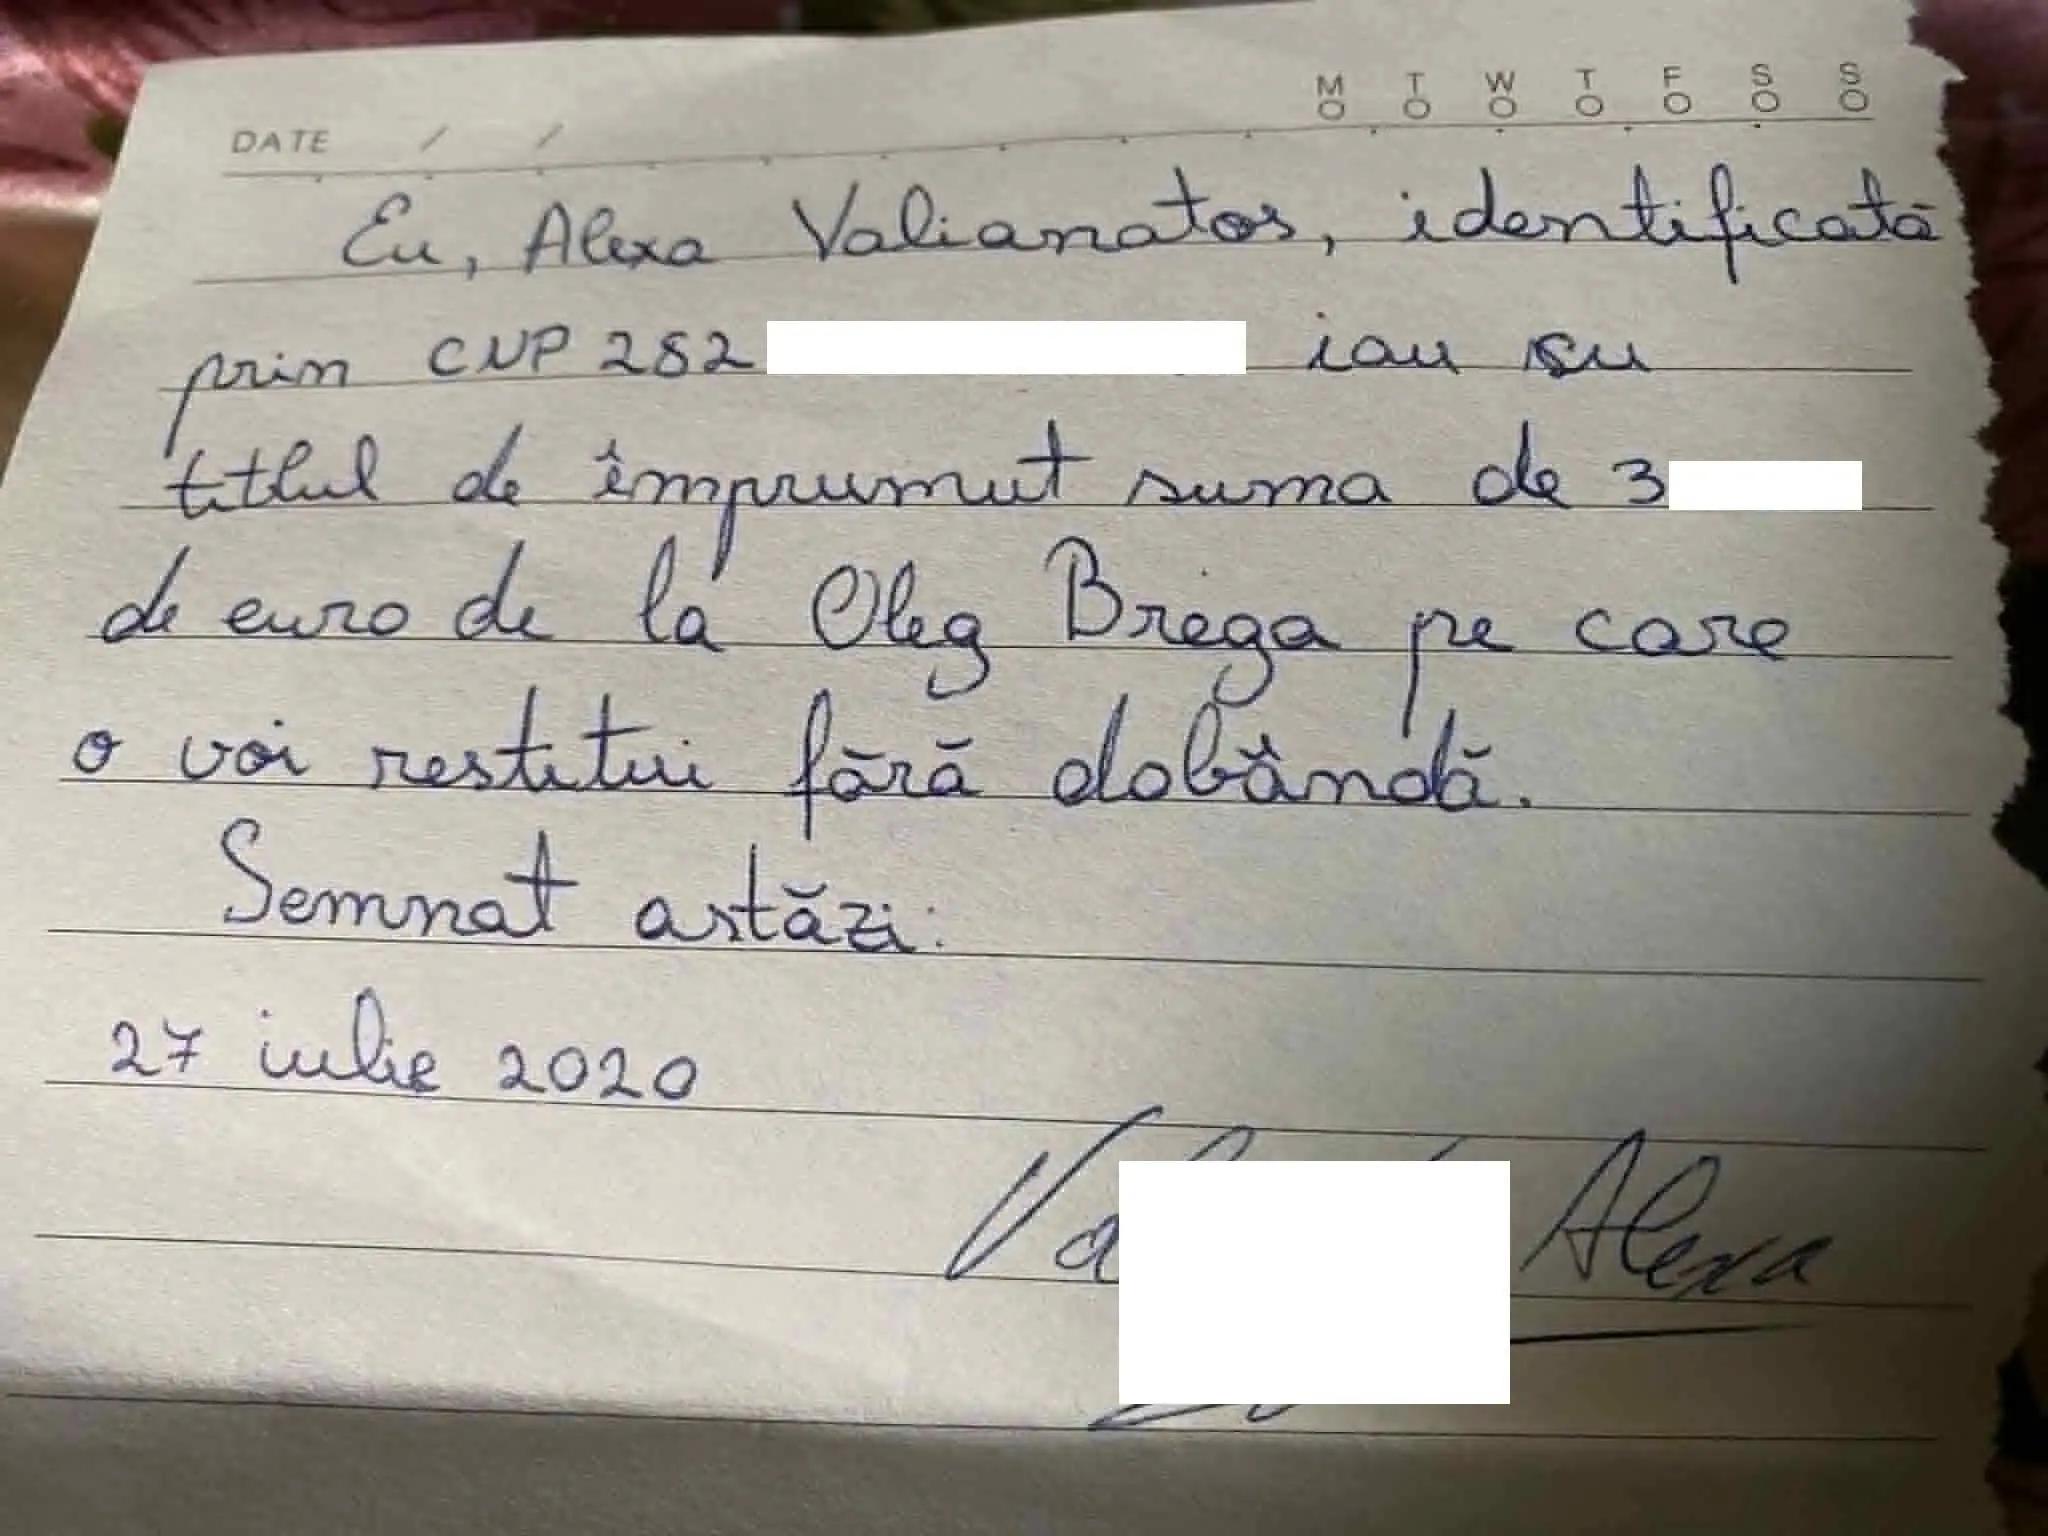 M T W T F S S
DATE / /
Eu, Alexa Valianatos, identificată
prin CNP 282 iau su
titlul de împrumut suma de 3
de euro de la Oleg Brega pe care
o voi restitui fără dobândă.
Semnat astăzi:
27 iulie 2020
Va Alexa